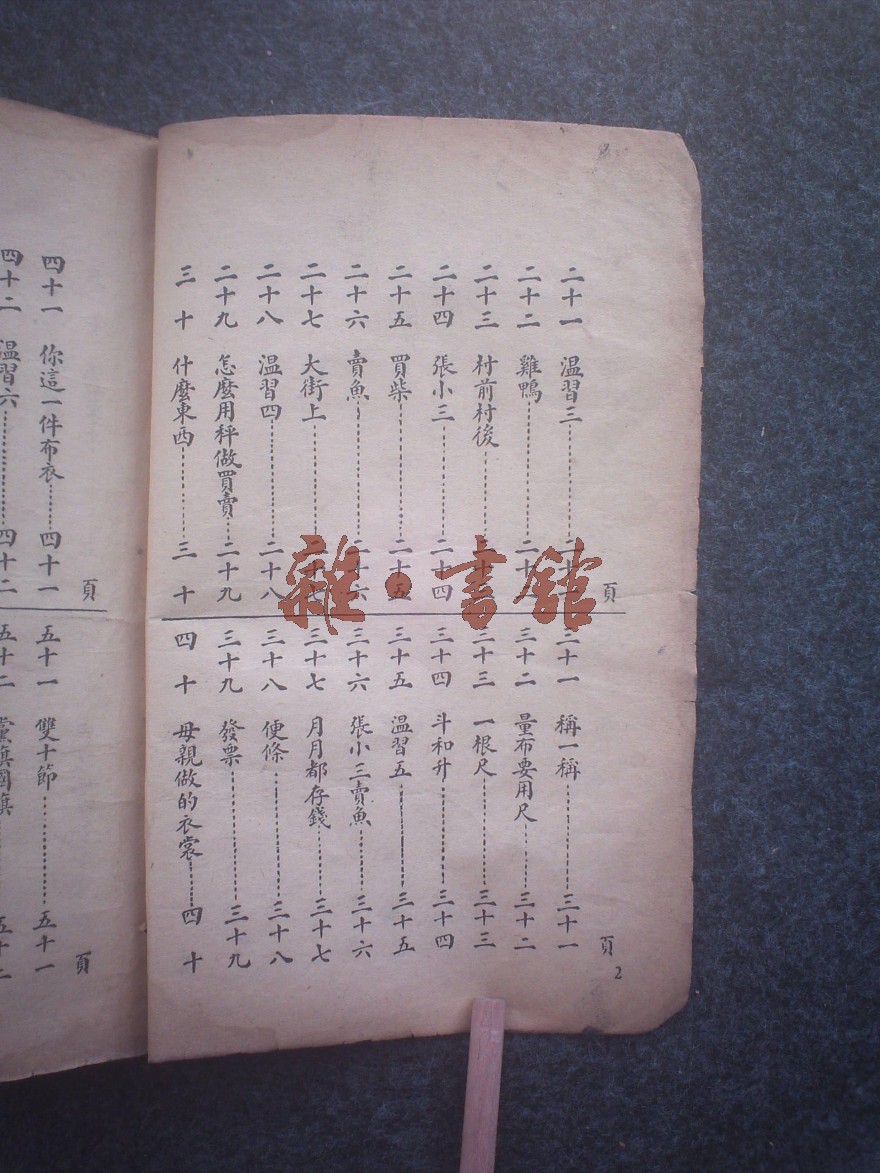 頁
二十一 温習三……二十一
二十二 雞鴨……二十二
二十三 村前村後……二十三
二十四 張小三……二十四
二十五 買柴……二十五
二十六 賣魚……二十六
二十七 大街上……二十七
二十八 温習四……二十八
二十九 怎麼用秤做買賣……二十九
三十 什麼東西……三十
頁
三十一 稱一稱……三十一
三十二 量布要用尺……三十二
三十三 一根尺……三十三
三十四 斗和升……三十四
三十五 温習五……三十五
三十六 張小三賣魚……三十六
三十七 月月都存錢……三十七
三十八 便條……三十八
三十九 發票……三十九
四十 母親做的衣裳……四十
2
頁
四十一 你這一件布衣……四十一
四十二 温習六……四十二
頁
五十一 雙十節……五十一
五十二 黨旗國旗……五十二
雜·書館